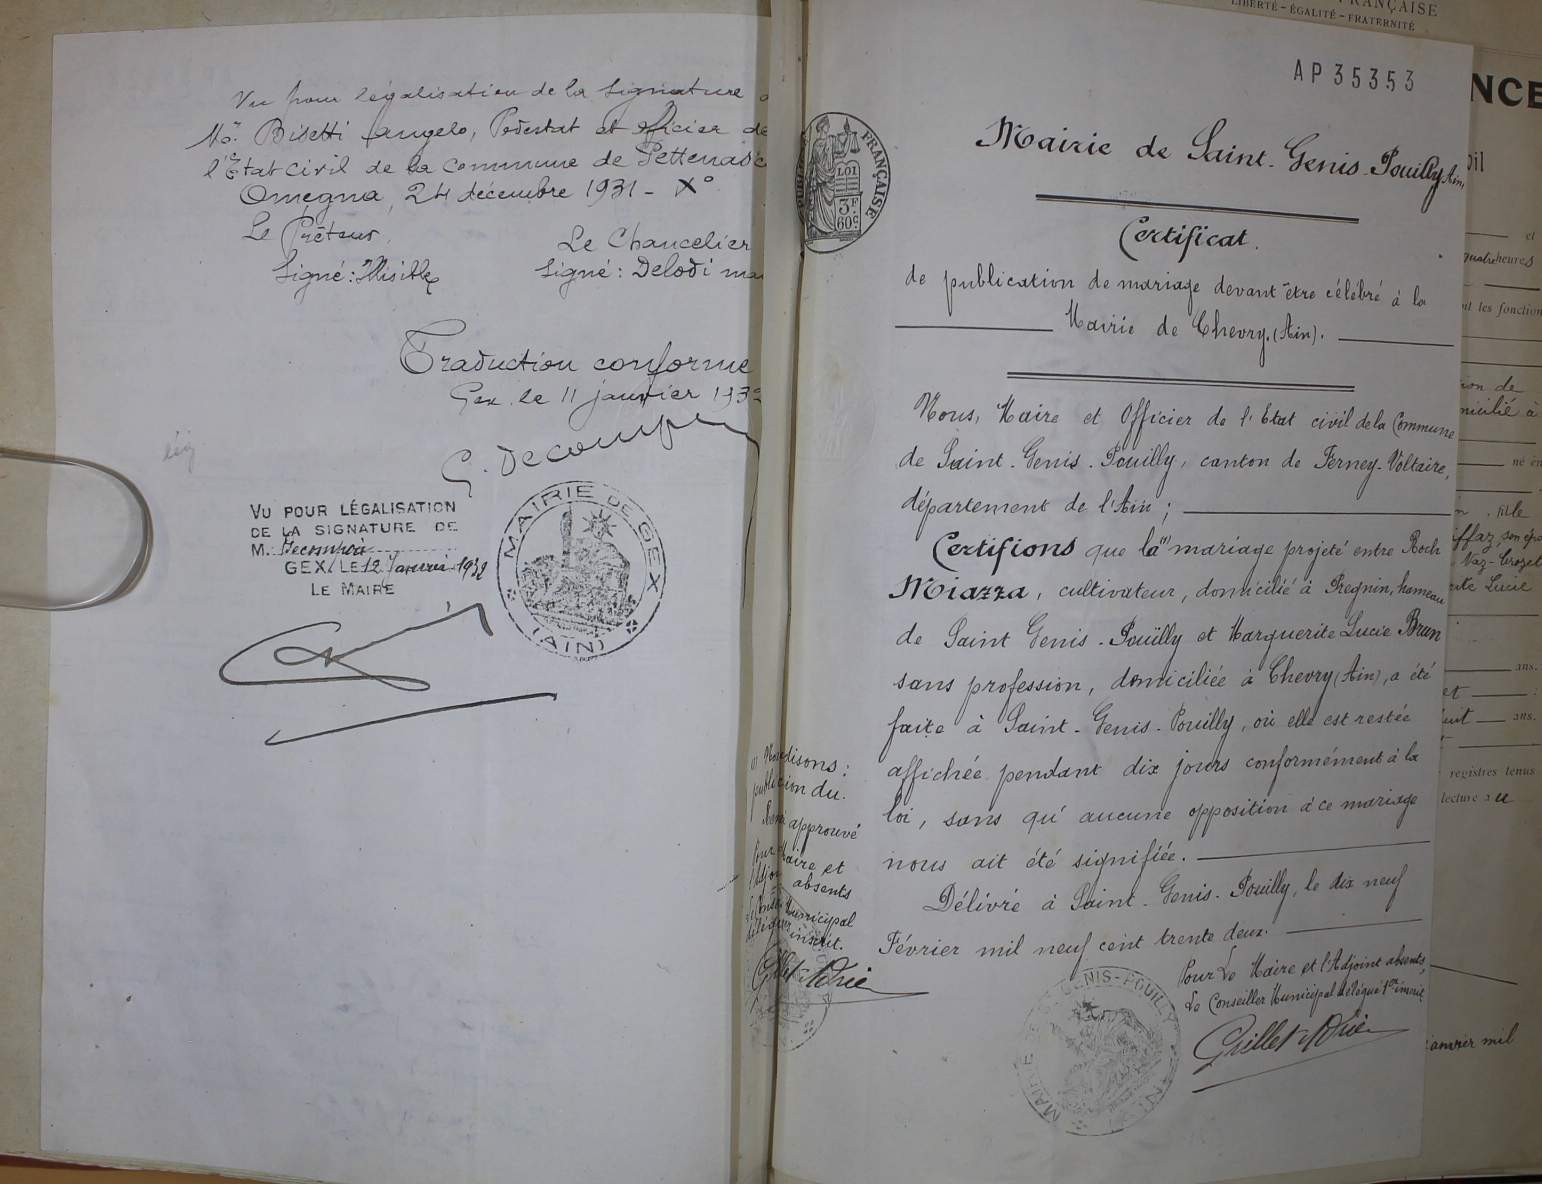 Vu pour légalisation de la signature
Mr. Bisetti Angelo, Podestat et officier de
l'Etat civil de la commune de Pettenasc
Omegna, 24 décembre 1931 - X°
Le Préteur, Le Chancelier
Signé: Illisible Signé: Delodi ma
Traduction conforme
Gex, le 11 janvier 193
VU POUR LÉGALISATION
DE LA SIGNATURE DE
M.
GEX, LE 12 Janvier 1932
LE MAIRE
MAIRIE DE GEX
(AIN)
disons:
publication du.
approuvé
Pour Maire et
l'Adjoint absents
Le Conseiller Municipal
délégué inscrit.
AP35353
FRANÇAISE
LOI
3F
60c
Mairie de Saint-Genis-Pouilly Ain,
Certificat.
de publication de mariage devant être célébré à la
Mairie de Chevry. (Ain).
Nous, Maire et Officier de l'Etat civil de la Commune
de Saint-Genis-Pouilly, canton de Ferney-Voltaire,
département de l'Ain;
Certifions que la "" mariage projeté entre Roch
Miazza, cultivateur, domicilié à Pregnin, hameau
de Saint Genis-Pouilly et Marguerite Lucie Brun
sans profession, domiciliée à Chevry (Ain), a été
faite à Saint-Genis-Pouilly, où elle est restée
affichée pendant dix jours conformément à la
loi, sans qu'aucune opposition à ce mariage
nous ait été signifiée.
Délivré à Saint-Genis-Pouilly, le dix neuf
Février mil neuf cent trente deux.
Pour Le Maire et l'Adjoint absents,
Le Conseiller Municipal délégué 1er inscrit
MAIRIE DE ST GENIS-POUILLY
FRANÇAISE
LIBERTÉ - ÉGALITÉ - FRATERNITÉ
NCE
et
quatre heures
les fonction
ion de
micilié à
né en
fille
ffaz, son épo
Naz-Crozet
Lucie
ans.
et
uit ans.
registres tenus
lecture au
janvier mil